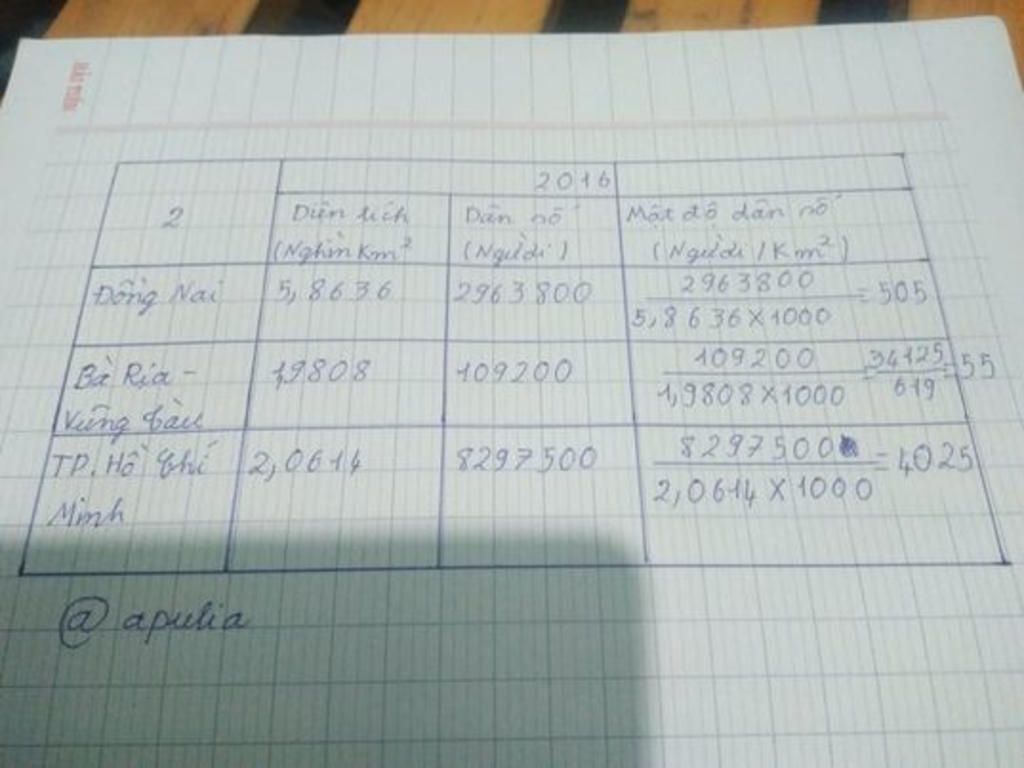 HẢI TIẾN
2016
2
Diện tích
Dân số
Mật độ dân số
(Nghìn Km²
(Người)
(Người/Km²)
Đồng Nai
5,8636
2963800
2963800
= 505
5,8636×1000
Bà Rịa -
1,9808
109200
109200
= 34125
= 55
1,9808×1000
619
Vũng tàu
TP. Hồ Chí
2,0614
8297500
8297500
= 4025
2,0614×1000
Minh
@ apulia